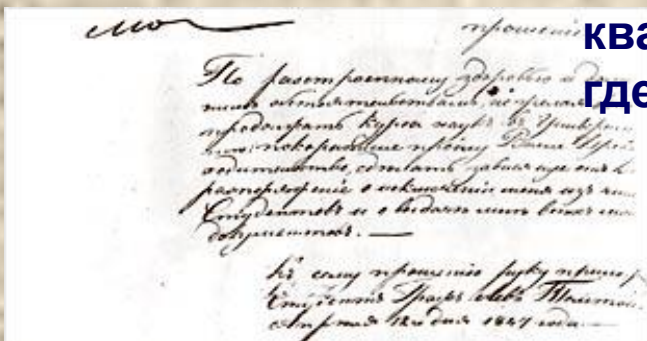 прошение
ква
где
По разстроенному здоровью и дом
нимъ обстоятельствамъ, не желая
продолжать курса наукъ въ Универси
покорнѣйше прошу Ваше Прево
ходительство, сдѣлать зависящее отъ
распоряженіе о исключеніи меня изъ чис
Студентовъ и о выдачѣ мнѣ всѣхъ мо
документовъ. —
Къ сему прошенію руку прило
Студентъ Графъ Левъ Толстой.
12го дня 1847 года